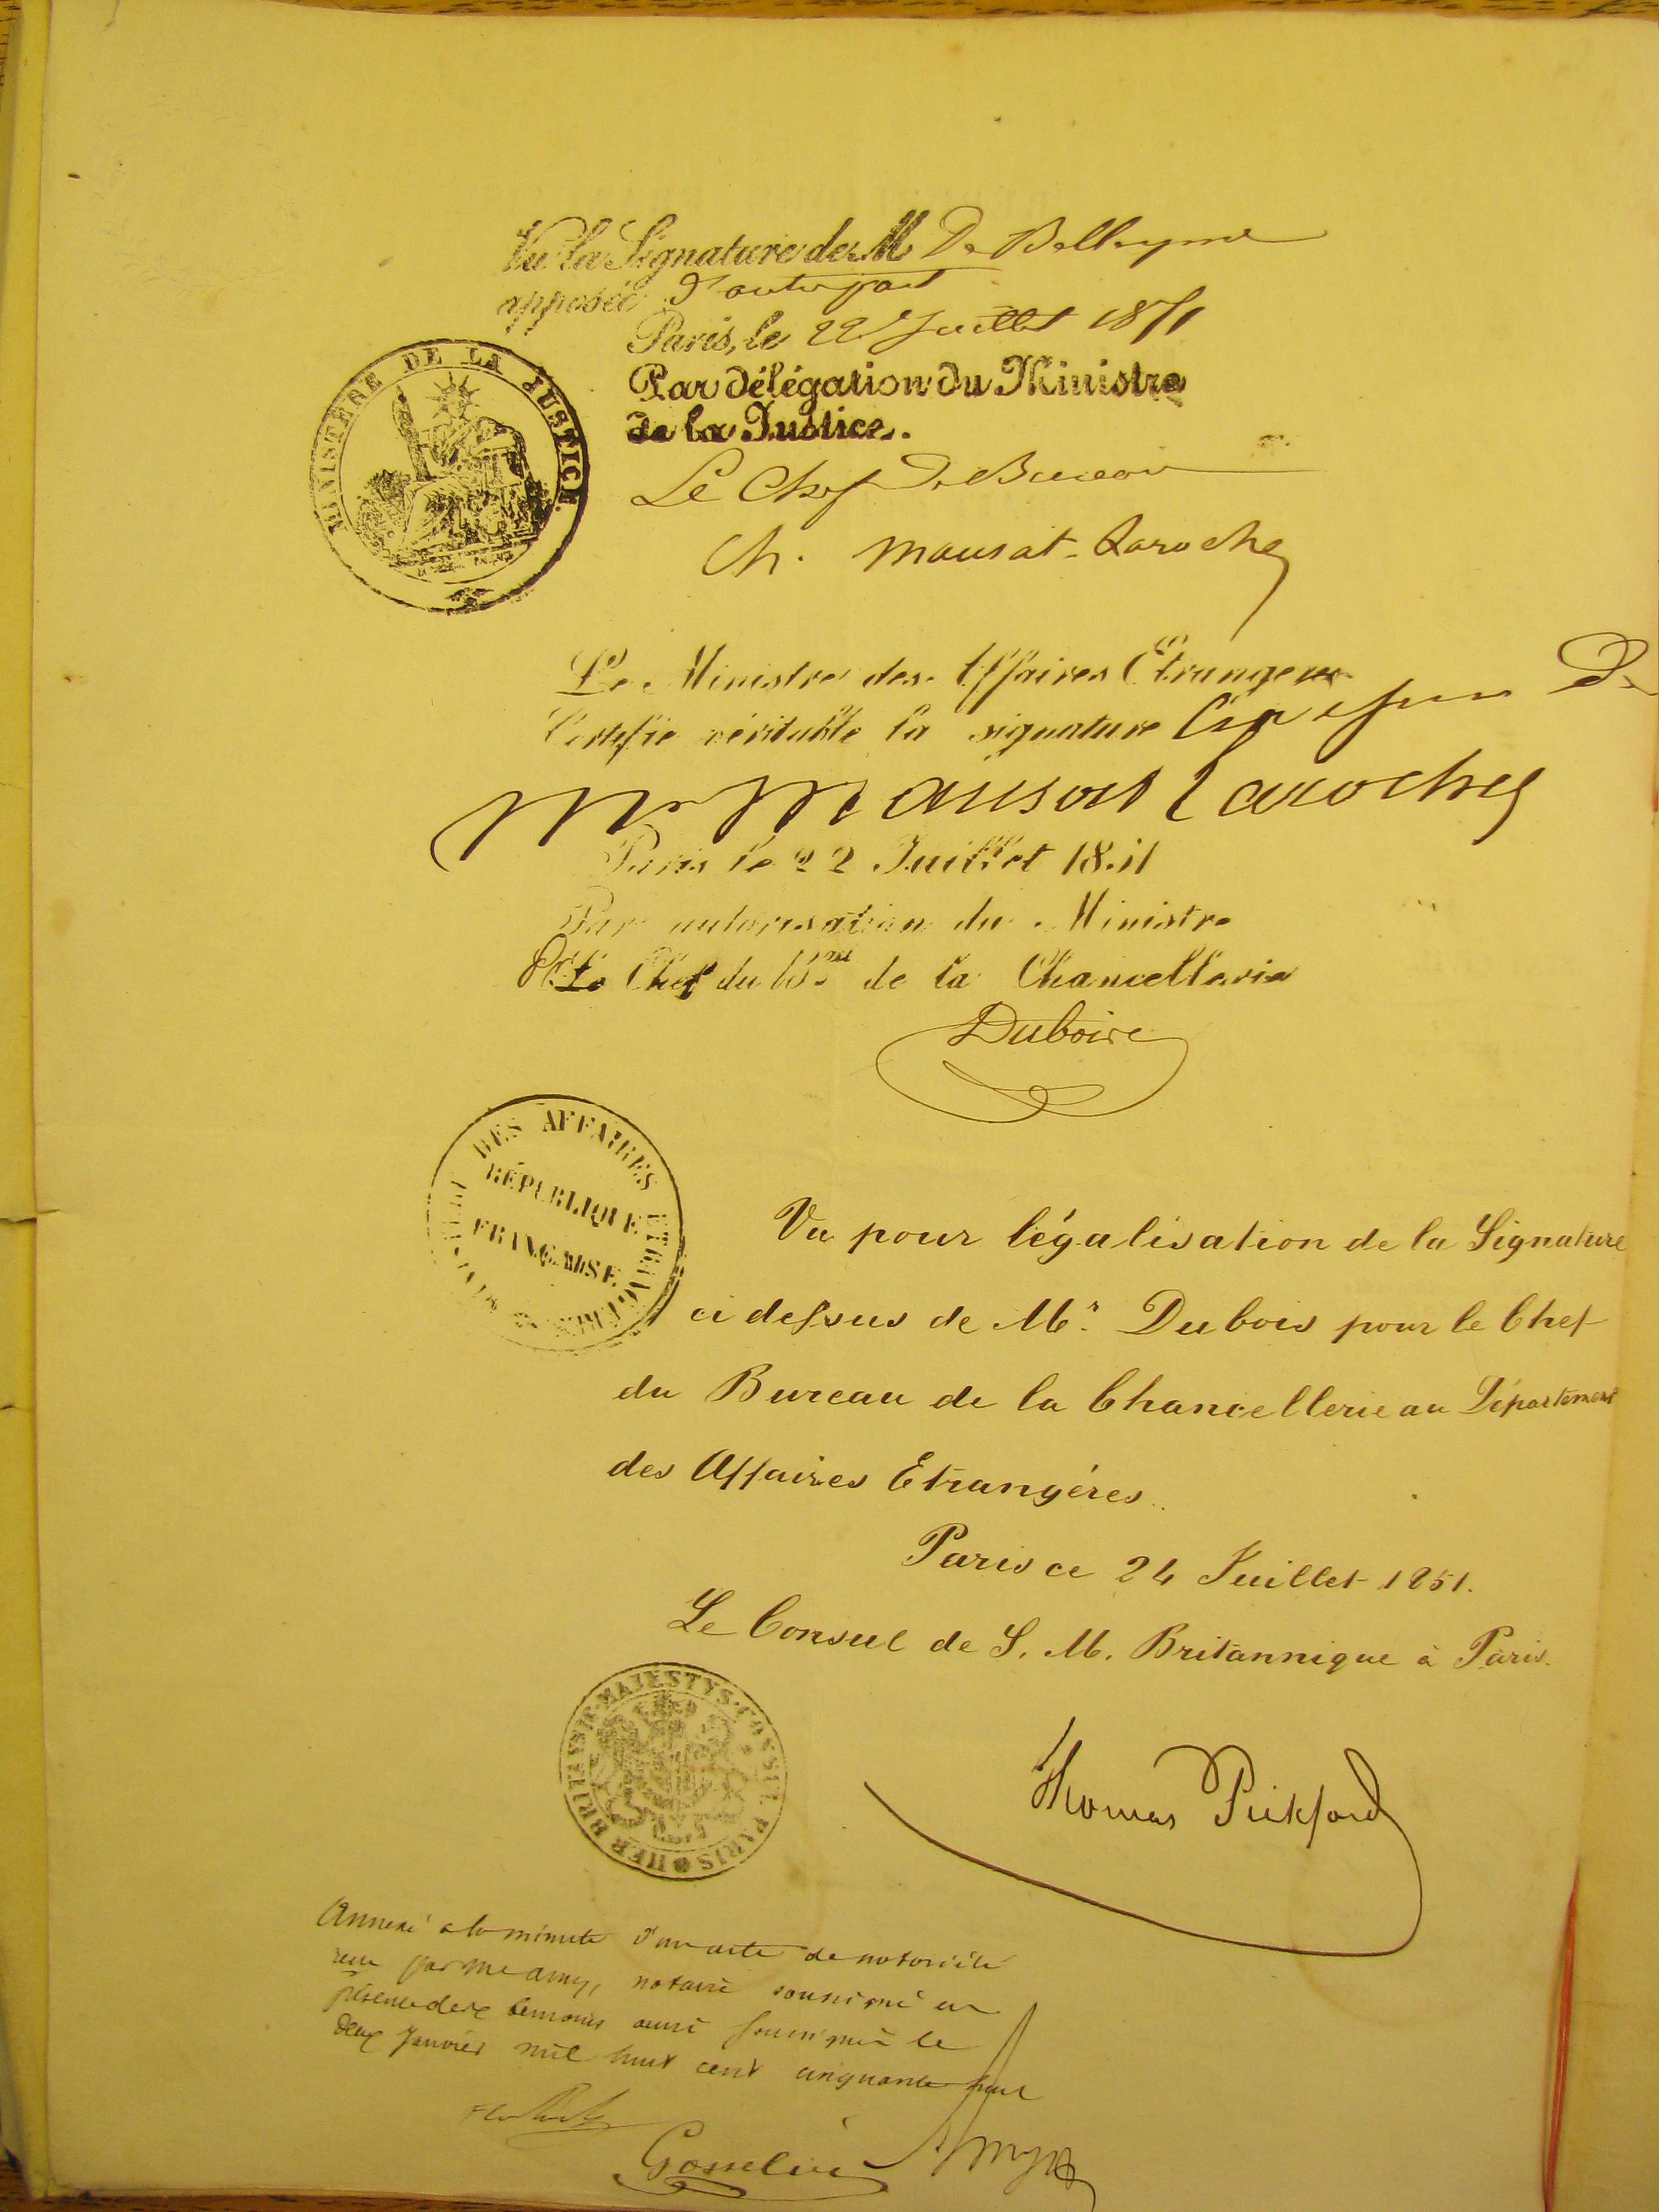 Vu la Signature de M De Belleyme
apposée d'autre part
Paris, le 22 Juillet 1851
Par délégation du Ministre
de la Justice.
Le Chef de Bureau
Ch. Mausat-Laroche
MINISTÈRE DE LA JUSTICE.
Le Ministre des Affaires Etrangères
Certifie véritable la signature De
Mr Mausat Laroche
Paris le 22 Juillet 1851
Par autorisation du Ministre
Le Chef du Bau de la Chancellerie
Dubois
DES AFFAIRES ETRANGÈRES
RÉPUBLIQUE
FRANÇAISE
Vu pour légalisation de la Signature
ci dessus de Mr. Dubois pour le Chef
du Bureau de la Chancellerie au Département
des Affaires Etrangères.
Paris ce 24 Juillet 1851.
Le Consul de S. M. Britannique à Paris.
HER BRITANNIC MAJESTYS CONSUL PARIS
Thomas Pickford
Annexé a la minute d'un acte de notoriété
reçu par Me Amy, notaire soussigné en
présence de témoins aussi soussignés le
deux Janvier mil huit cent cinquante
Gosselin Amy